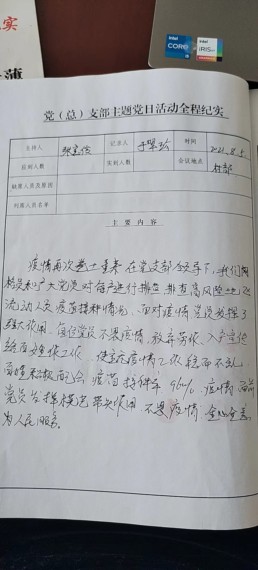 实
薄
intel
CORE
i5
intel
iRIS
党（总）支部主题党日活动全程纪实
主持人
记录人
时间
2021.8.5
应到人数
实到人数
会议地点
村部
缺席人员及原因
列席人员名单
主要内容
疫情再次卷土重来 在党支部领导下，我们
广大党员对每户进行排查 排查高风险地区
流动人员 疫苗接种情况，面对疫情 党员发挥了
作用，每位党员不畏疫情，放弃劳作，入户宣传
工作，使 疫情工作 稳而不乱
积极配合 疫苗接种率 96% 疫情面前
党员发挥模范带头作用 不畏疫情 全心全意
为人民服务